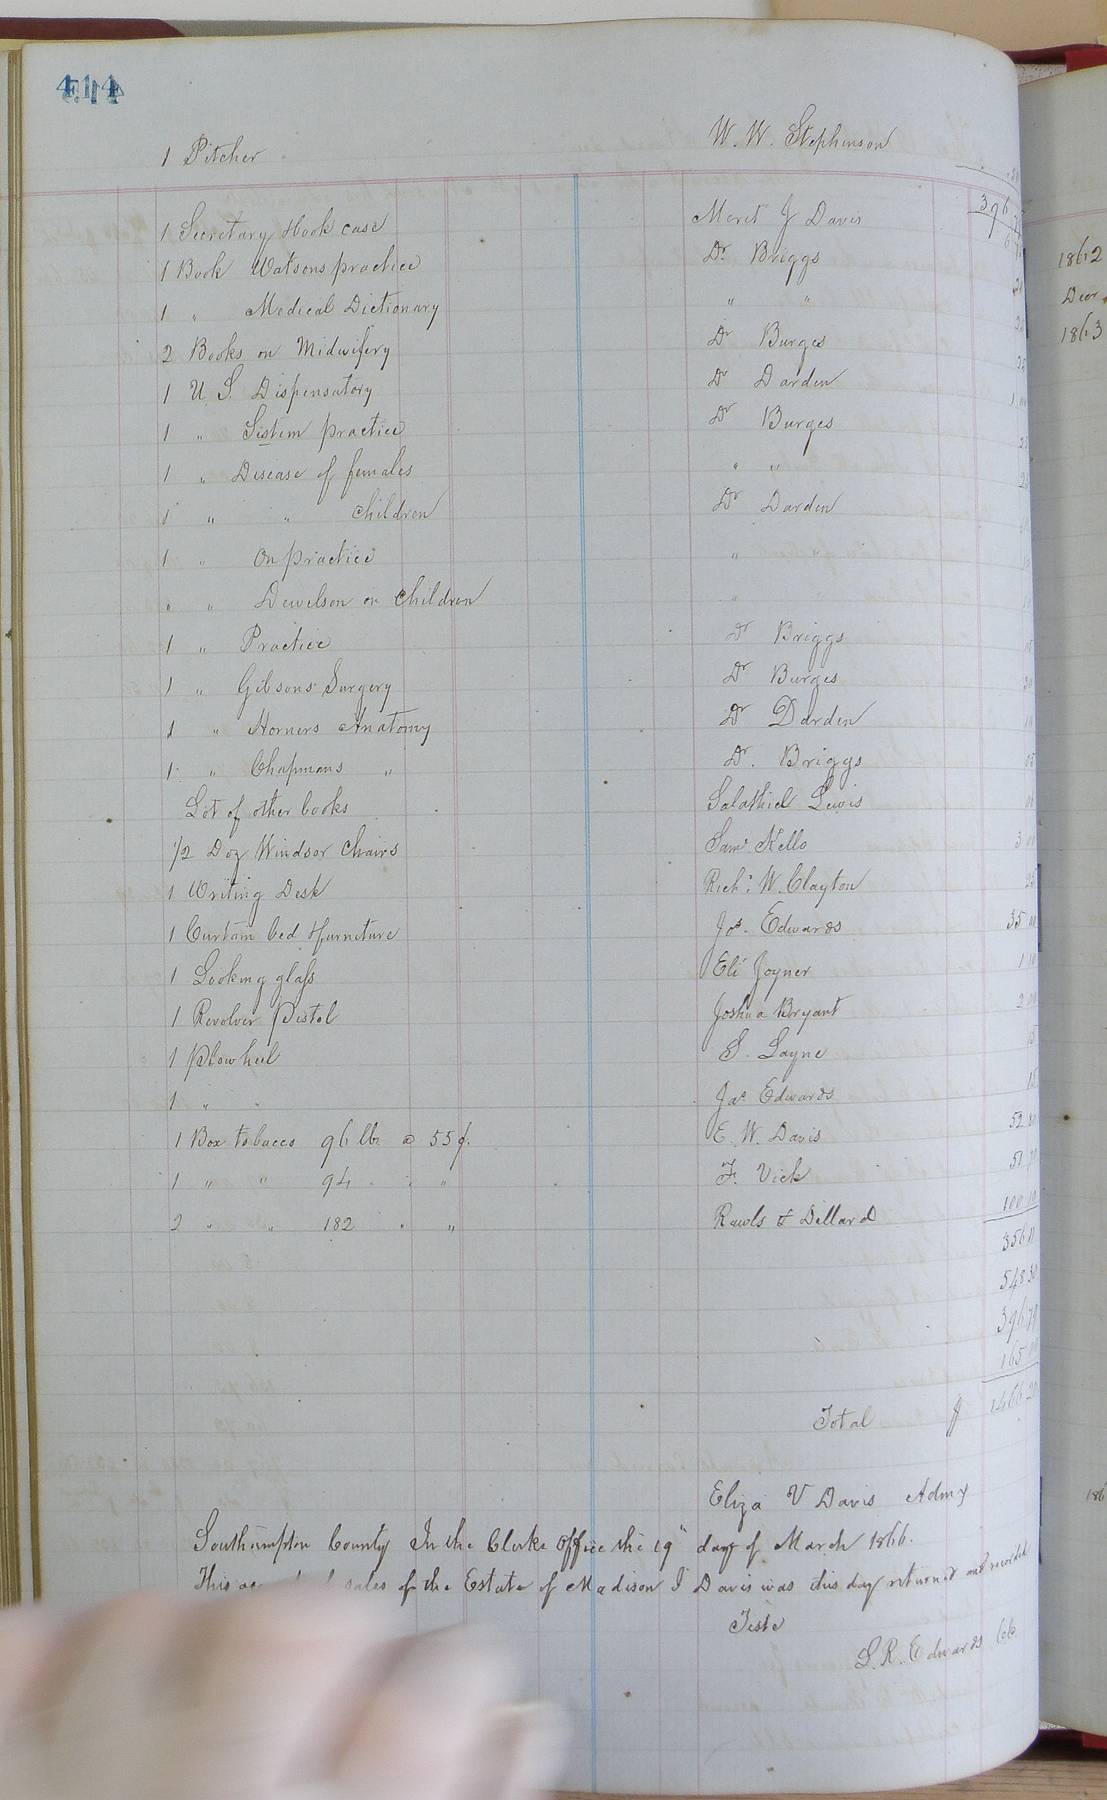 414
1 Pitcher W. W. Stephenson
1 Secretary & Book case Merit J Davis
1 Book Watsons practice Dr. Briggs
1 " Medical Dictionary " "
2 Books on Midwifery Dr Burges
1 U. S. Dispensatory Dr Darden 1 00
1 " Sistem practice Dr Burges
1 " Disease of females " "
1 " " Children Dr Darden
1 " On practice " "
" " Dewelson on Children " "
1 " Practice Dr Briggs
1 " Gibsons Surgery Dr Burges
1 " Horners Anatomy Dr Darden
1 " Chapmans " Dr. Briggs
Lot of other books Salathiel Lewis
1/2 Doz Windsor Chairs Saml Kello 3 00
1 Writing Desk Richd W. Clayton
1 Curtain bed & furniture Jos. Edwards 35 00
1 Looking glass Eli Joyner
1 Revolver Pistol Joshua Bryant 2 00
1 Plow heel S. Layne
1 " " Jas Edwards
1 Box tobacco 96 lbs @ 55¢. E. W. Davis 52 80
1 " " 94 " " F. Vick 51 70
2 " " 182 " " Rawls & Dillard 100 10
356 11
548 30
396 79
165 00
Total $ 1466 20
Eliza V Davis Admx
Southampton County In the Clerks Office the 19" day of March 1866.
This sales of the Estate of Madison J Davis was this day returned and recorded
Teste
L. R. Edwards CC
1862
Decr
1863
186